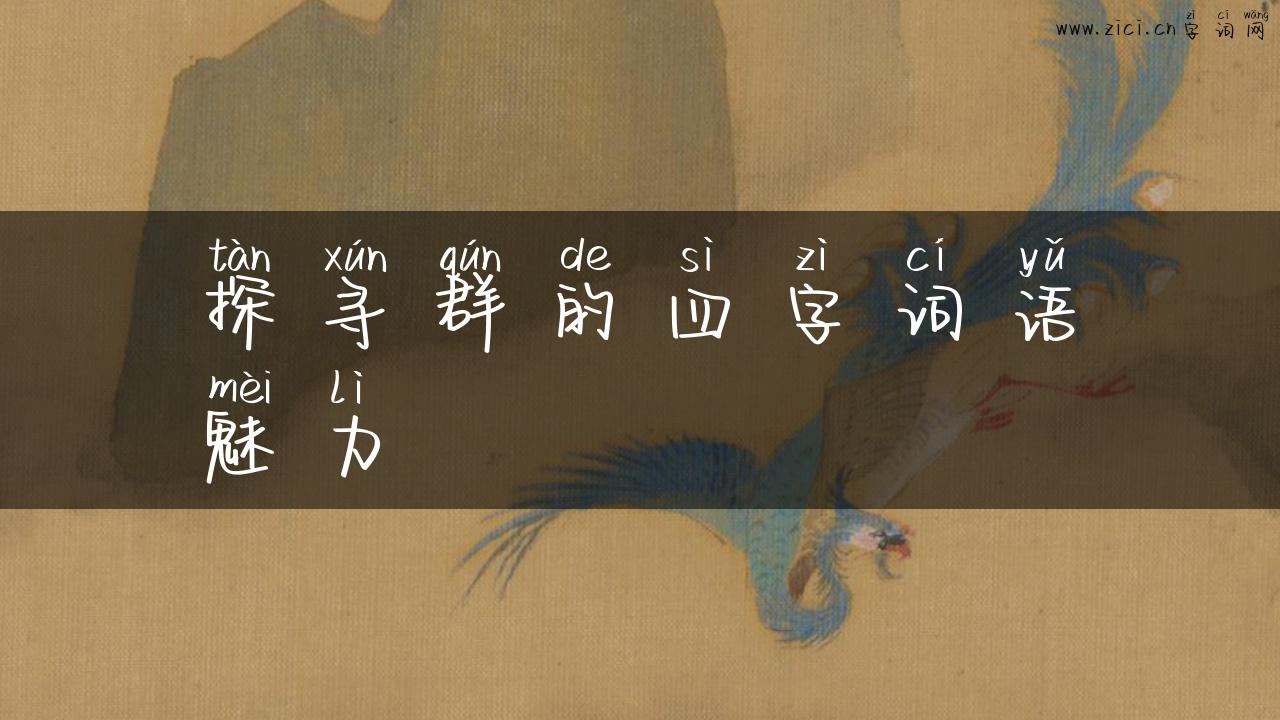 zì cí wǎng
www.zici.cn 字词网
tàn xún qún de sì zì cí yǔ
探寻群的四字词语
mèi lì
魅力